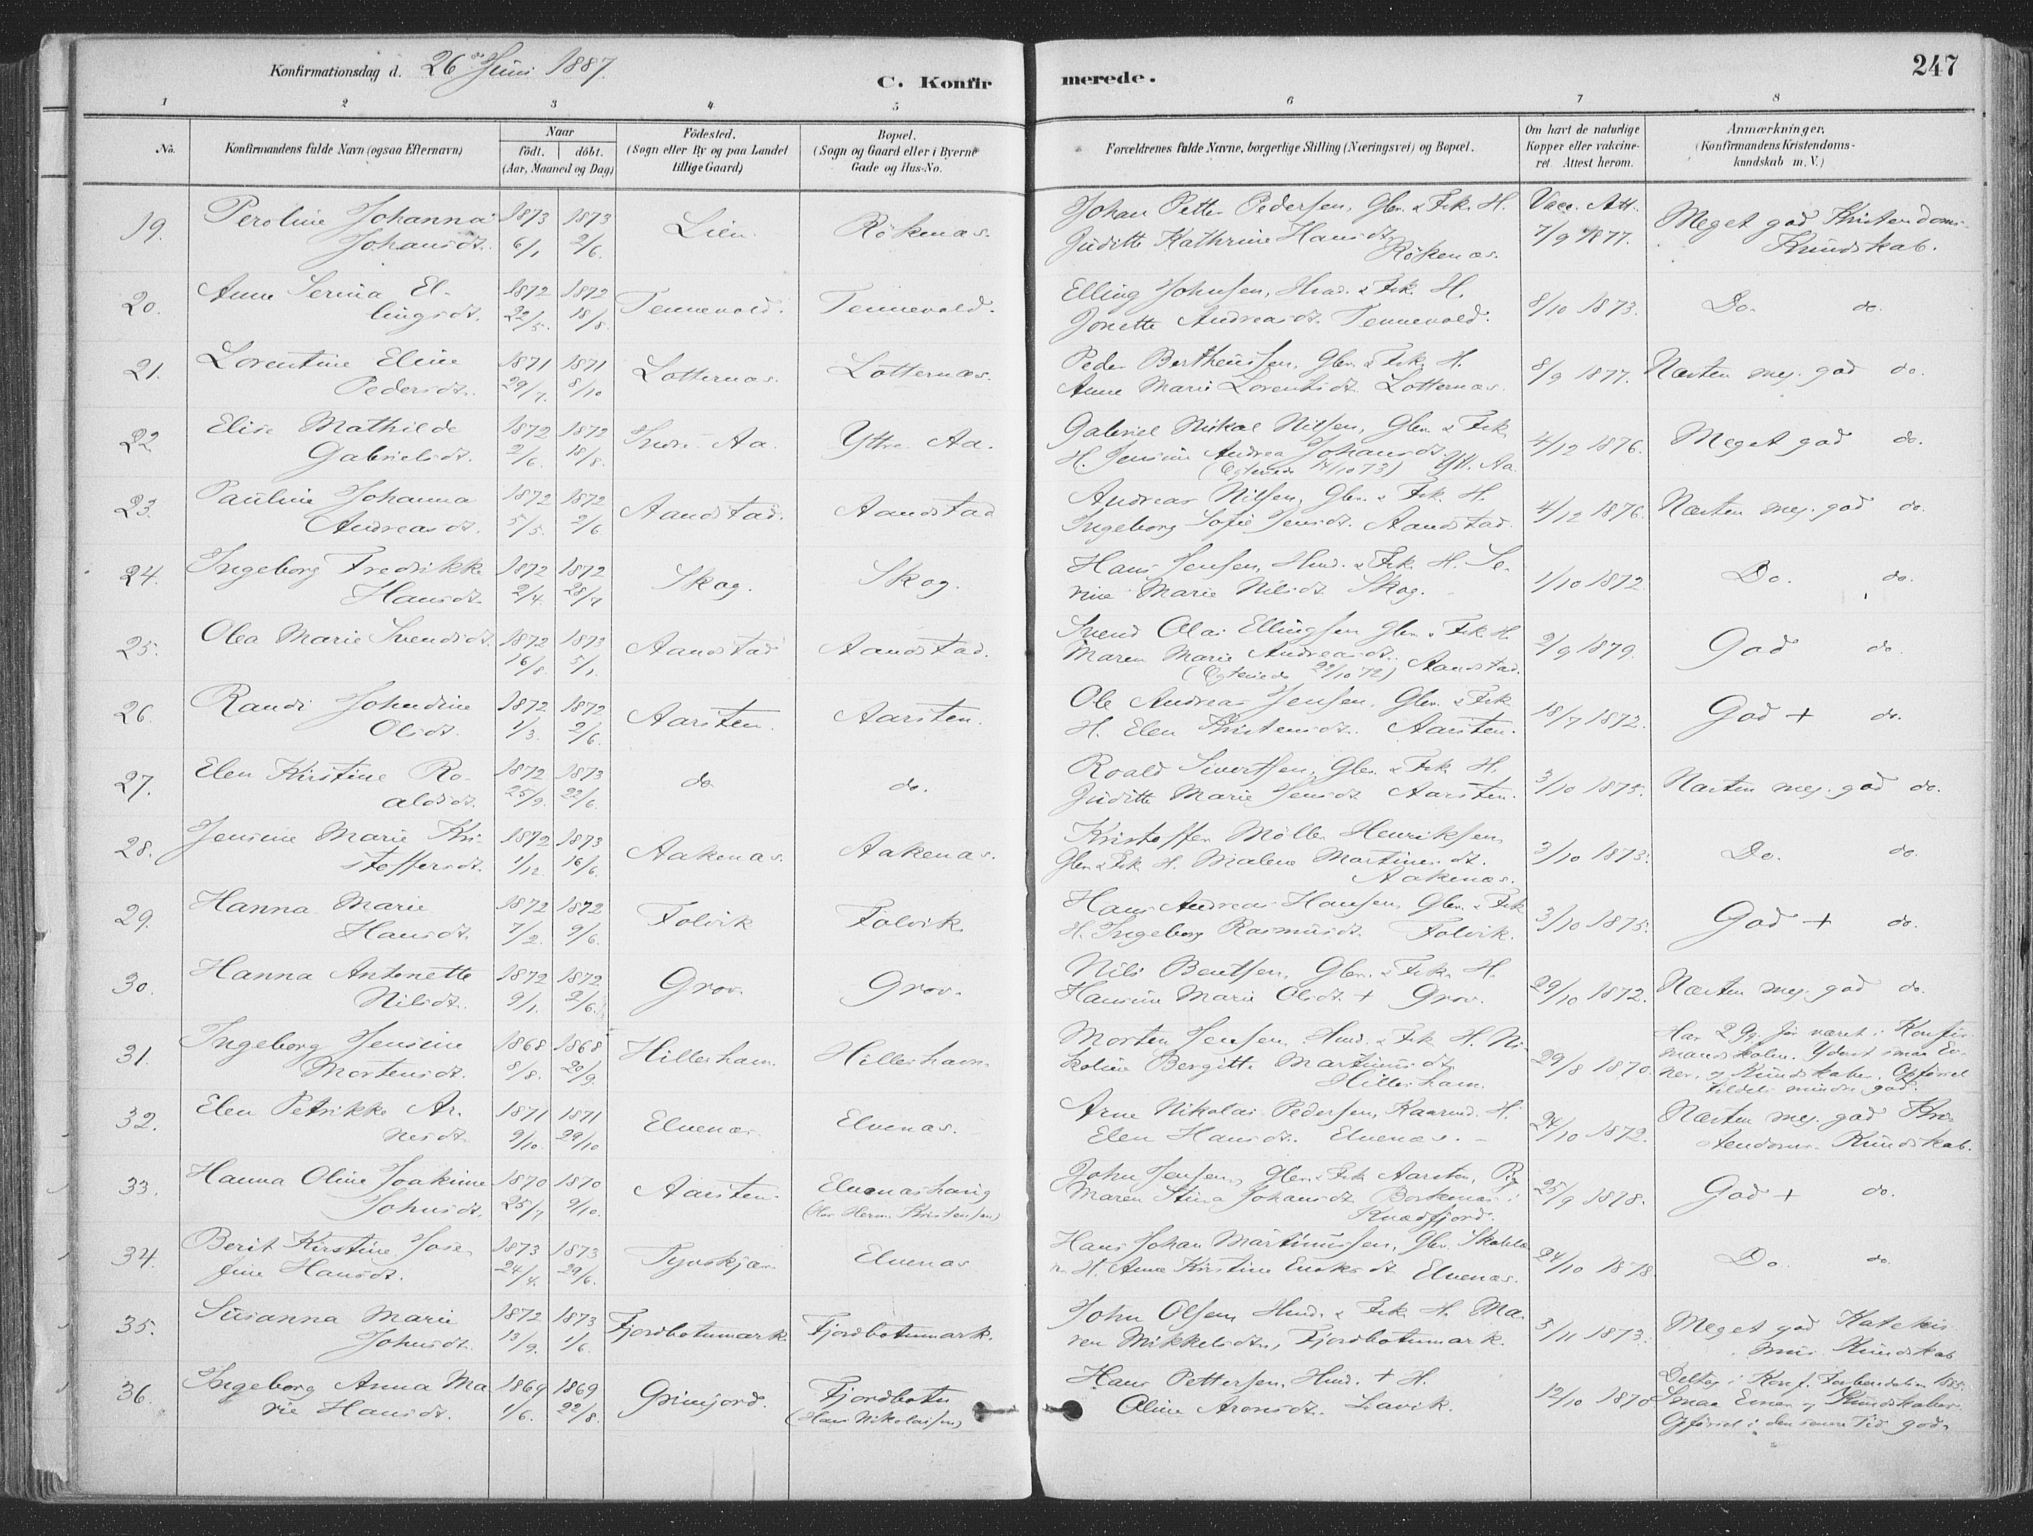 Konfirmationsdag d. 26 Juni 1887.
C. Konfirmerede.
247
1 2 3 4 5 6 7 8
No. Konfirmandens fulde Navn (ogsaa Efternavn) Naar födt. döbt. (Aar, Maaned og Dag) Födested. (Sogn eller By og paa Landet tillige Gaard) Bopæl. (Sogn og Gaard eller i Byerne Gade og Hus-No. Forældrenes fulde Navne, borgerlige Stilling (Næringsvei) og Bopæl. Om havt de naturlige Kopper eller vakcineret. Attest herom. Anmærkninger. (Konfirmandens Kristendomskundskab m. V.)
19. Peroline Johanna 1873 1873 Lien Rökenas. Johan Petter Pedersen, Gbr. & Fsk. H. Vacc. Att. Meget god Kristendoms-
Johansdt. 6/1 2/6. Juditte Kathrine Hansdt. Rökenas. 7/9 1877. Kundskab.
20. Anne Serina El- 1872 1872 Tennevold. Tennevold. Elling Johnsen, Hmd. & Fsk. H. 8/10 1873. Do. do.
lingsdt. 22/5. 18/8. Jonette Andreasdt. Tennevold.
21. Lorentine Eline 1871 1871 Lotternas. Lotternas. Peder Bertheussen, Gbr. & Fsk. H. 8/9 1877. Næsten meg. god do.
Pedersdt. 29/7. 8/10 Anne Marie Lorentsdt. Lotternas.
22 Elise Mathilde 1872 1872 Indre Aa. Yttre Aa. Gabriel Nikal Nilsen, Gbr. & Fsk. 4/12 1876. Meget god do.
Gabrielsdt. 2/6. 18/8. H. Jensine Andrea Johansdt. Ytt. Aa.
(Egteviede 14/10 73)
23. Pauline Johanna 1872 1872 Aandstad. Aandstad Andreas Nilsen, Gbr. & Fsk. H. 4/12 1876. Næsten meg. god do.
Andreasdt. 5/5. 2/6. Ingeborg Sofie Jensdt. Aandstad.
24. Ingeborg Fredrikke 1872 1872 Skog. Skog. Hans Jensen, Hmd. & Fsk. H. Se- 1/10 1872. Do. do.
Hansdt. 2/4. 28/7 rine Marie Nilsdt. Skog.
25. Olea Marie Svendsdt. 1872 1873 Aandstad Aandstad. Svend Olai Ellingsen Gbr. & Fsk. H. 2/9 1879. God do.
16/8 5/1. Maren Marie Andreasdt. Aandstad.
(Egteviede 22/10 72)
26. Randi Johndine 1872 1872 Aarsten. Aarsten. Ole Andreas Jensen. Gbr. & Fsk 18/7 1872. God + do.
Olsdt. 1/3. 2/6. H. Elen Kristensdt. Aarsten.
27. Elen Kirstine Ro- 1872 1873 do do. Roald Sivertsen, Gbr. & Fsk. H. 3/10 1875. Næsten meg. god do.
aldsdt. 25/9. 22/6. Juditte Marie Jensdt. Aarsten.
28. Jensine Marie Kri- 1872 1873 Aakenas. Aakenas. Kristoffer Möller Henriksen, 3/10 1873. Do. do.
stoffersdt. 1/12 16/6. Gbr. & Fsk. H. Malene Martinesdt.
Aakenas.
29. Hanna Marie 1872 1872 Folvik Folvik. Hans Andreas Hansen, Gbr. & Fsk 3/10 1875. God + do.
Hansdt. 7/2. 9/6. H. Ingeborg Rasmusdt. Folvik.
30. Hanna Antonette 1872 1872 Grov. Grov. Nils Bentsen, Gbr. & Fsk. H. 29/10 1872. Næsten meg. god do.
Nilsdt. 9/1. 2/6. Hansine Marie Olsdt + Grov.
31. Ingeborg Jensine 1868 1868 Hillesham. Hilleshavn Morten Jensen, Hmd. & Fsk. H. Ni- 29/8 1870. Har 2 Gg. för været i Konfir-
Mortensdt. 8/8. 20/9. koline Bergitte Martinusdt mandskolen. Yderst smaa Ev-
Hillesham. ner og Kundskaber. Opförsel
tildels mindre god.
32. Elen Petrikke Ar- 1871 1871 Elvenas Elvenas. Arne Nikolai Pedersen, Kaarmd. H. 24/10 1872. Næsten meg. god Kri-
nesdt. 9/10 29/10 Elen Hansdt. Elvenas. stendoms Kundskab.
33. Hanna Oline Joakime 1870 1870 Aarsten. Elvenashaug John Jensen, Gbr. & Fsk Aarsten, Pig 25/9 1878. God + do.
Johnsdt. 25/7 9/10. (Hos Herm. Kristensen) Maren Stina Johansdt Borkenas i
Kvædfjord.
34. Berit Kirstine Jose- 1873 1873 Elvenas Hans Johan Martinussen, Gbr. 24/10 1878. Do. do.
fine Hansdt. 24/4. 29/6. H. Anne Kristine Enoksdt Elvenas.
35. Susanna Marie 1872 1873 Fjordbotnmark. Fjordbotnmark. John Olsen Hmd. & Fsk. H. Ma- 3/11 1873. Meget god Katekis-
Johnsdt. 13/9. 1/6. ren Mikkelsdt, Fjordbotnmark. mus Kundskab
36. Ingeborg Anna Ma- 1869 1869 Grimfjord. Fjordbotn Hans Pettersen, Hmd. + H. 12/10 1870 Deltog i Konf. Forberedelsen
rie Hansdt. 1/6. 22/8. (Hans Nikolaisen) Oline Aronsdt. Lavik. Smaa Evner og Kundskaber.
Opförsel i den senere Tid god.